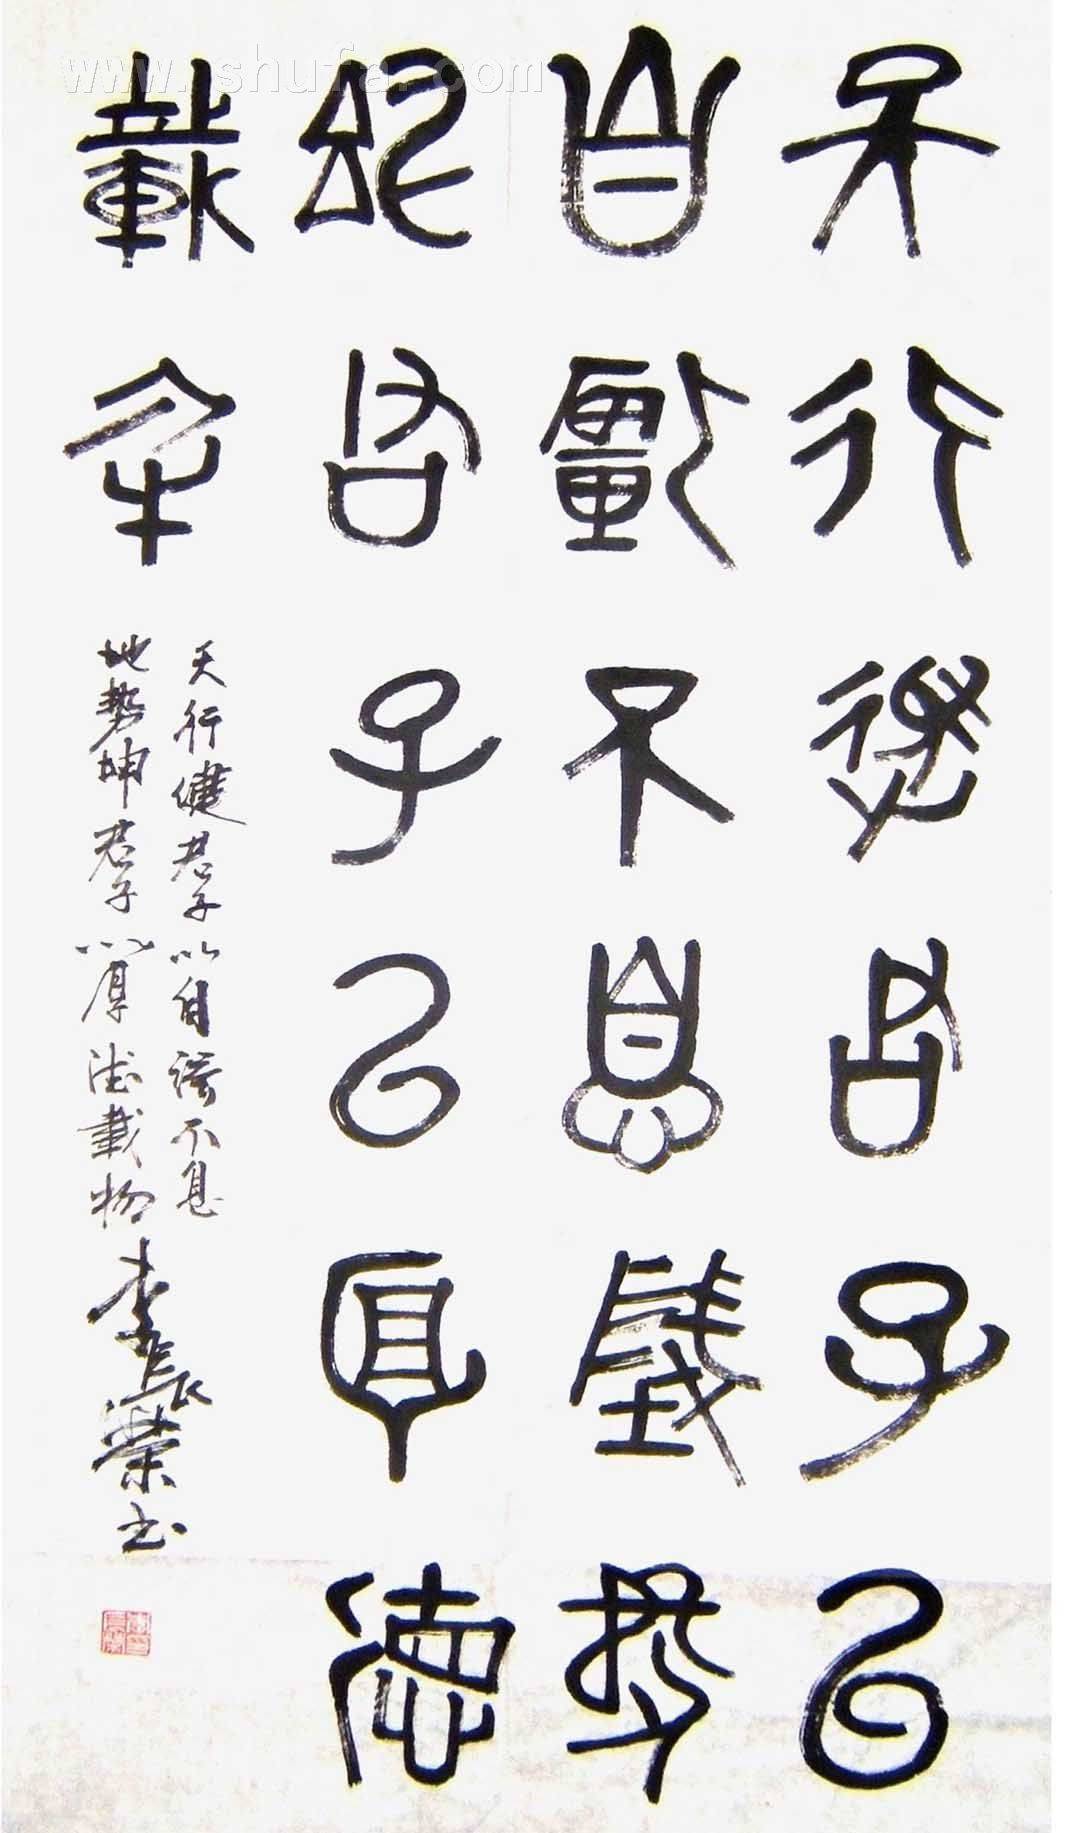 天行健君子以
自强不息地势
坤君子以厚德
载物
天行健君子以自强不息
地势坤君子以厚德载物
李長榮书
www.shufa.com